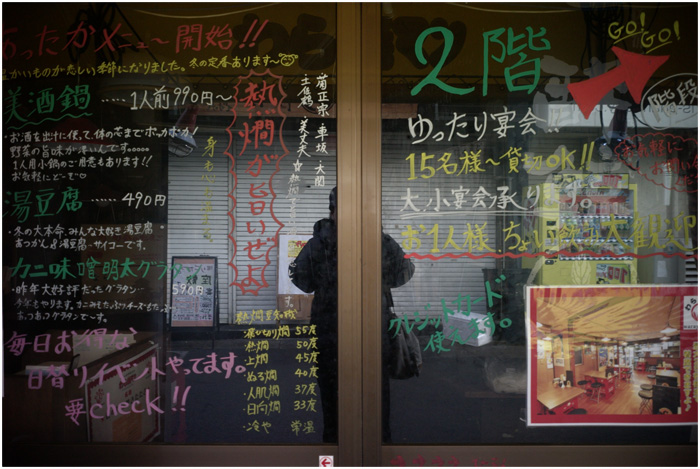 あったかメニュー開始!!
温かいものがたのしい季節になりました。冬の定番あります〜
美酒鍋 ……1人前990円〜
・お酒を出汁に使って、体の芯までポッカポカ!
野菜の旨味が
1人用小鍋のご用意もあります!!
お気軽にどーぞ
湯豆腐 …… 490円
・冬の大本命、みんな大好き湯豆腐
あつかん&湯豆腐 サイコーです。
カニ味噌明太グラタン 590円
・昨年大好評だったグラタン…
今年もやります。カニみそたっぷりチーズも
あつあつグラタンでーす。
毎日お得な
日替りイベントやってます。
要check!!
熱燗が旨いぜよ
菊正宗・車坂・大関
土佐鶴・美丈夫
☆熱燗
熱燗豆知識
飛びきり燗 55度
熱燗 50度
上燗 45度
ぬる燗 40度
・人肌燗 37度
・日向燗 33度
・冷や 常温
2階
GO!
GO!
階段
ゆったり宴会…
15名様〜貸切OK!!
大、小宴会承ります。
お1人様、ちょい飲み大歓迎
クレジットカード
使えます。